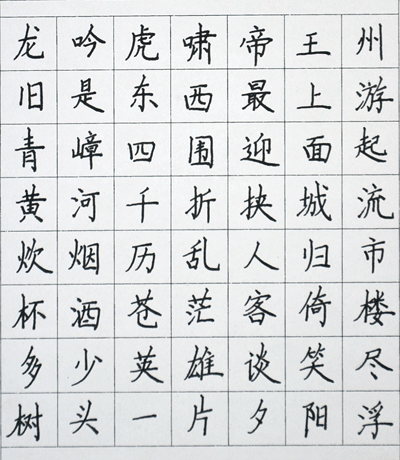 龙吟虎啸帝王州
旧是东西最上游
青嶂四围迎面起
黄河千折抉城流
炊烟历乱人归市
杯酒苍茫客倚楼
多少英雄谈笑尽
树头一片夕阳浮